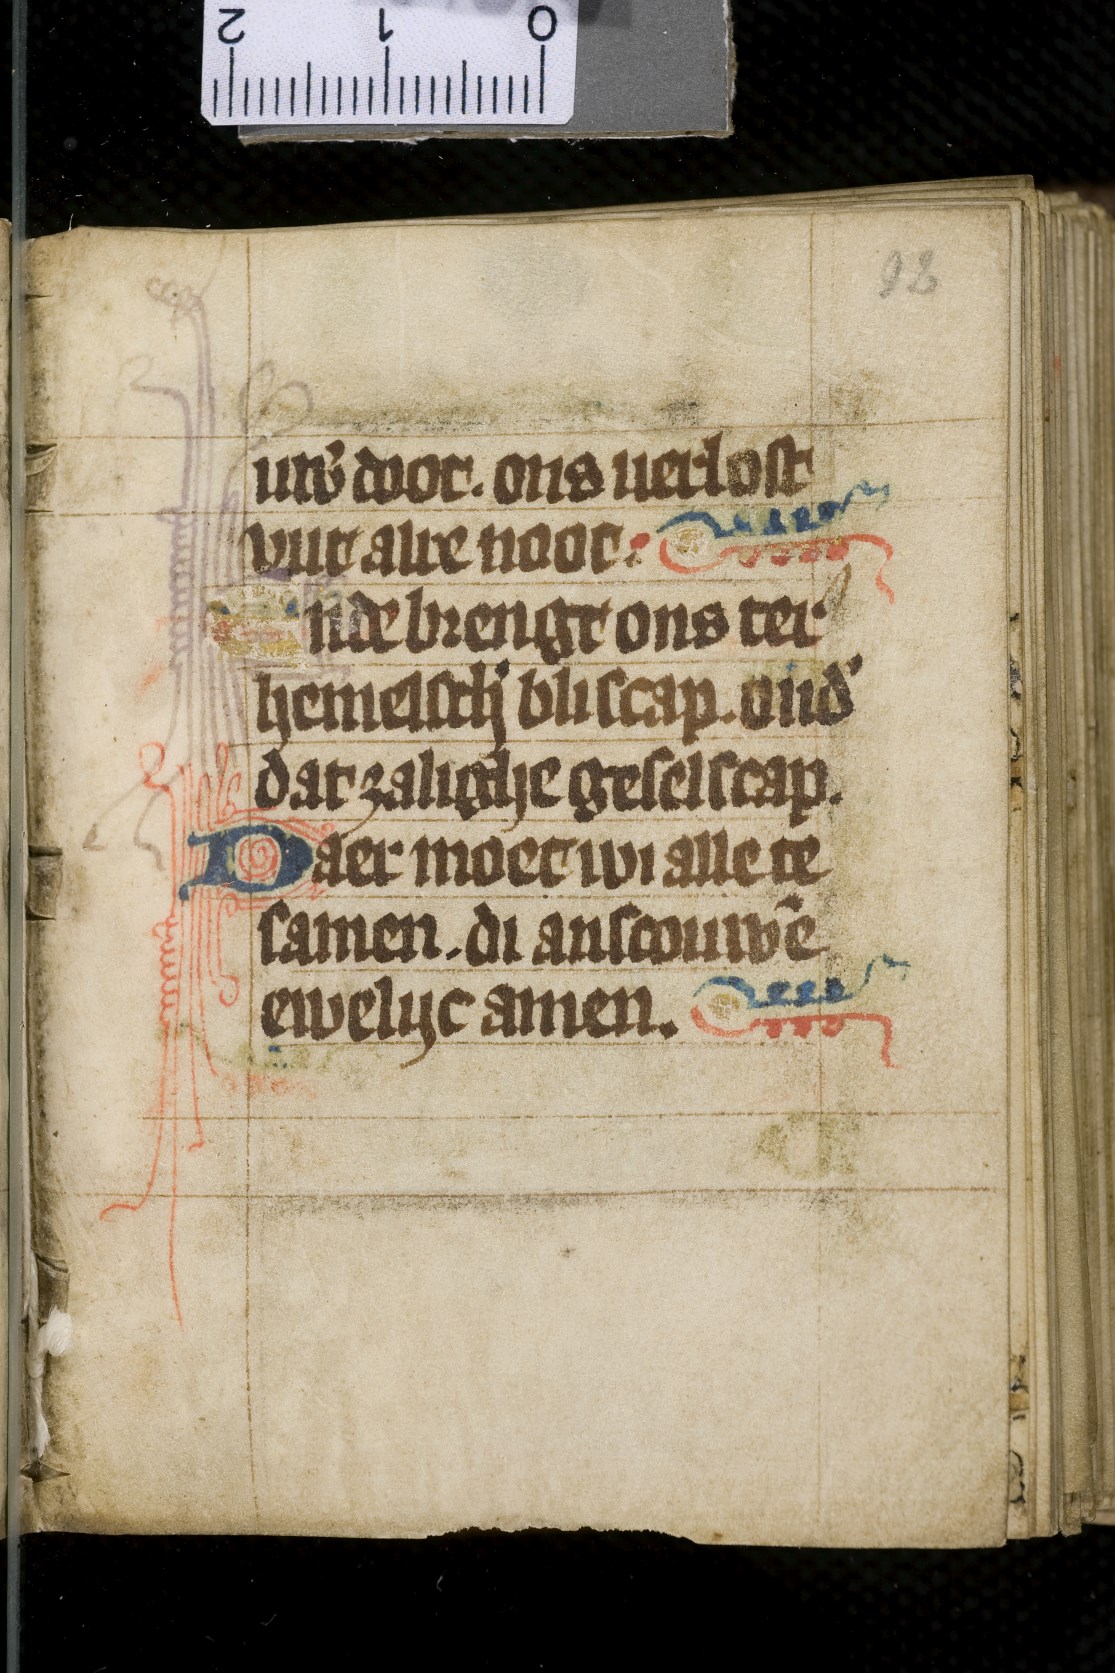 2 1 0
92
uw̄ doot. ons uerlost
vut alre noot:
Ende brengt ons ter
hemelsch' bliscap. ond'
dat zalighe geselscap.
Daer moet wi alle te
samen. di anscouwē
ewelijc amen.